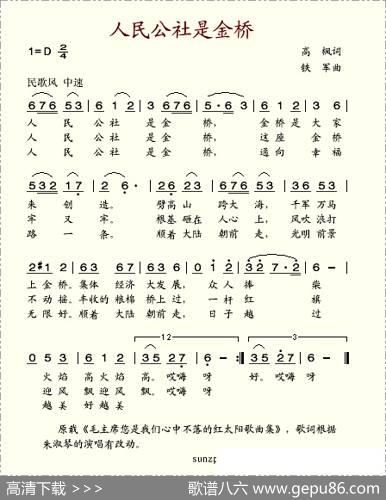 人民公社是金桥
1=D 2/4
高 枫词
铁 军曲
民歌风 中速
676 53 | 6 1 2 | 3 676 | 5·6 3 | 6 1 2 | 3 676 |
人 民 公 社 是 金 桥, 金 桥 是 大 家
人 民 公 社 是 金 桥, 这 座 金 桥
人 民 公 社 是 金 桥, 通 向 幸 福
532 17 | 2 6· | 26 23 | 3 53 | 23 26 | 73 53 |
来 创 造。 劈高 山 跨大 海, 千军 万马
牢 又 牢。 根基 砸在 人心 上, 风吹 浪打
路 一 条。 顺着 大陆 朝前 走, 光明 前景
2#1 2 | 63 67 | 63 67 | 05 35 | 0 1 2 | 32 7·2 |
上 金桥。集体 经济 大发 展, 众人 捧 柴
不 动摇。丰收的 粮棉 桥上 过, 一杆 红 旗
无 限好。顺着 大陆 朝前 走, 日子 越 过
12
3
0 53 | 612 | 35 27 | 6 - :‖ 35 27 | 6 - ‖
火焰 高火焰 高。哎嗨 呀 好。哎嗨 呀
迎风 飘迎风 飘。哎嗨 呀
越美 好越美
原载《毛主席您是我们心中不落的红太阳歌曲集》,歌词根据
朱淑琴的演唱有改动。
sunzp
高清下载 >>> 歌谱八六 www.gepu86.com